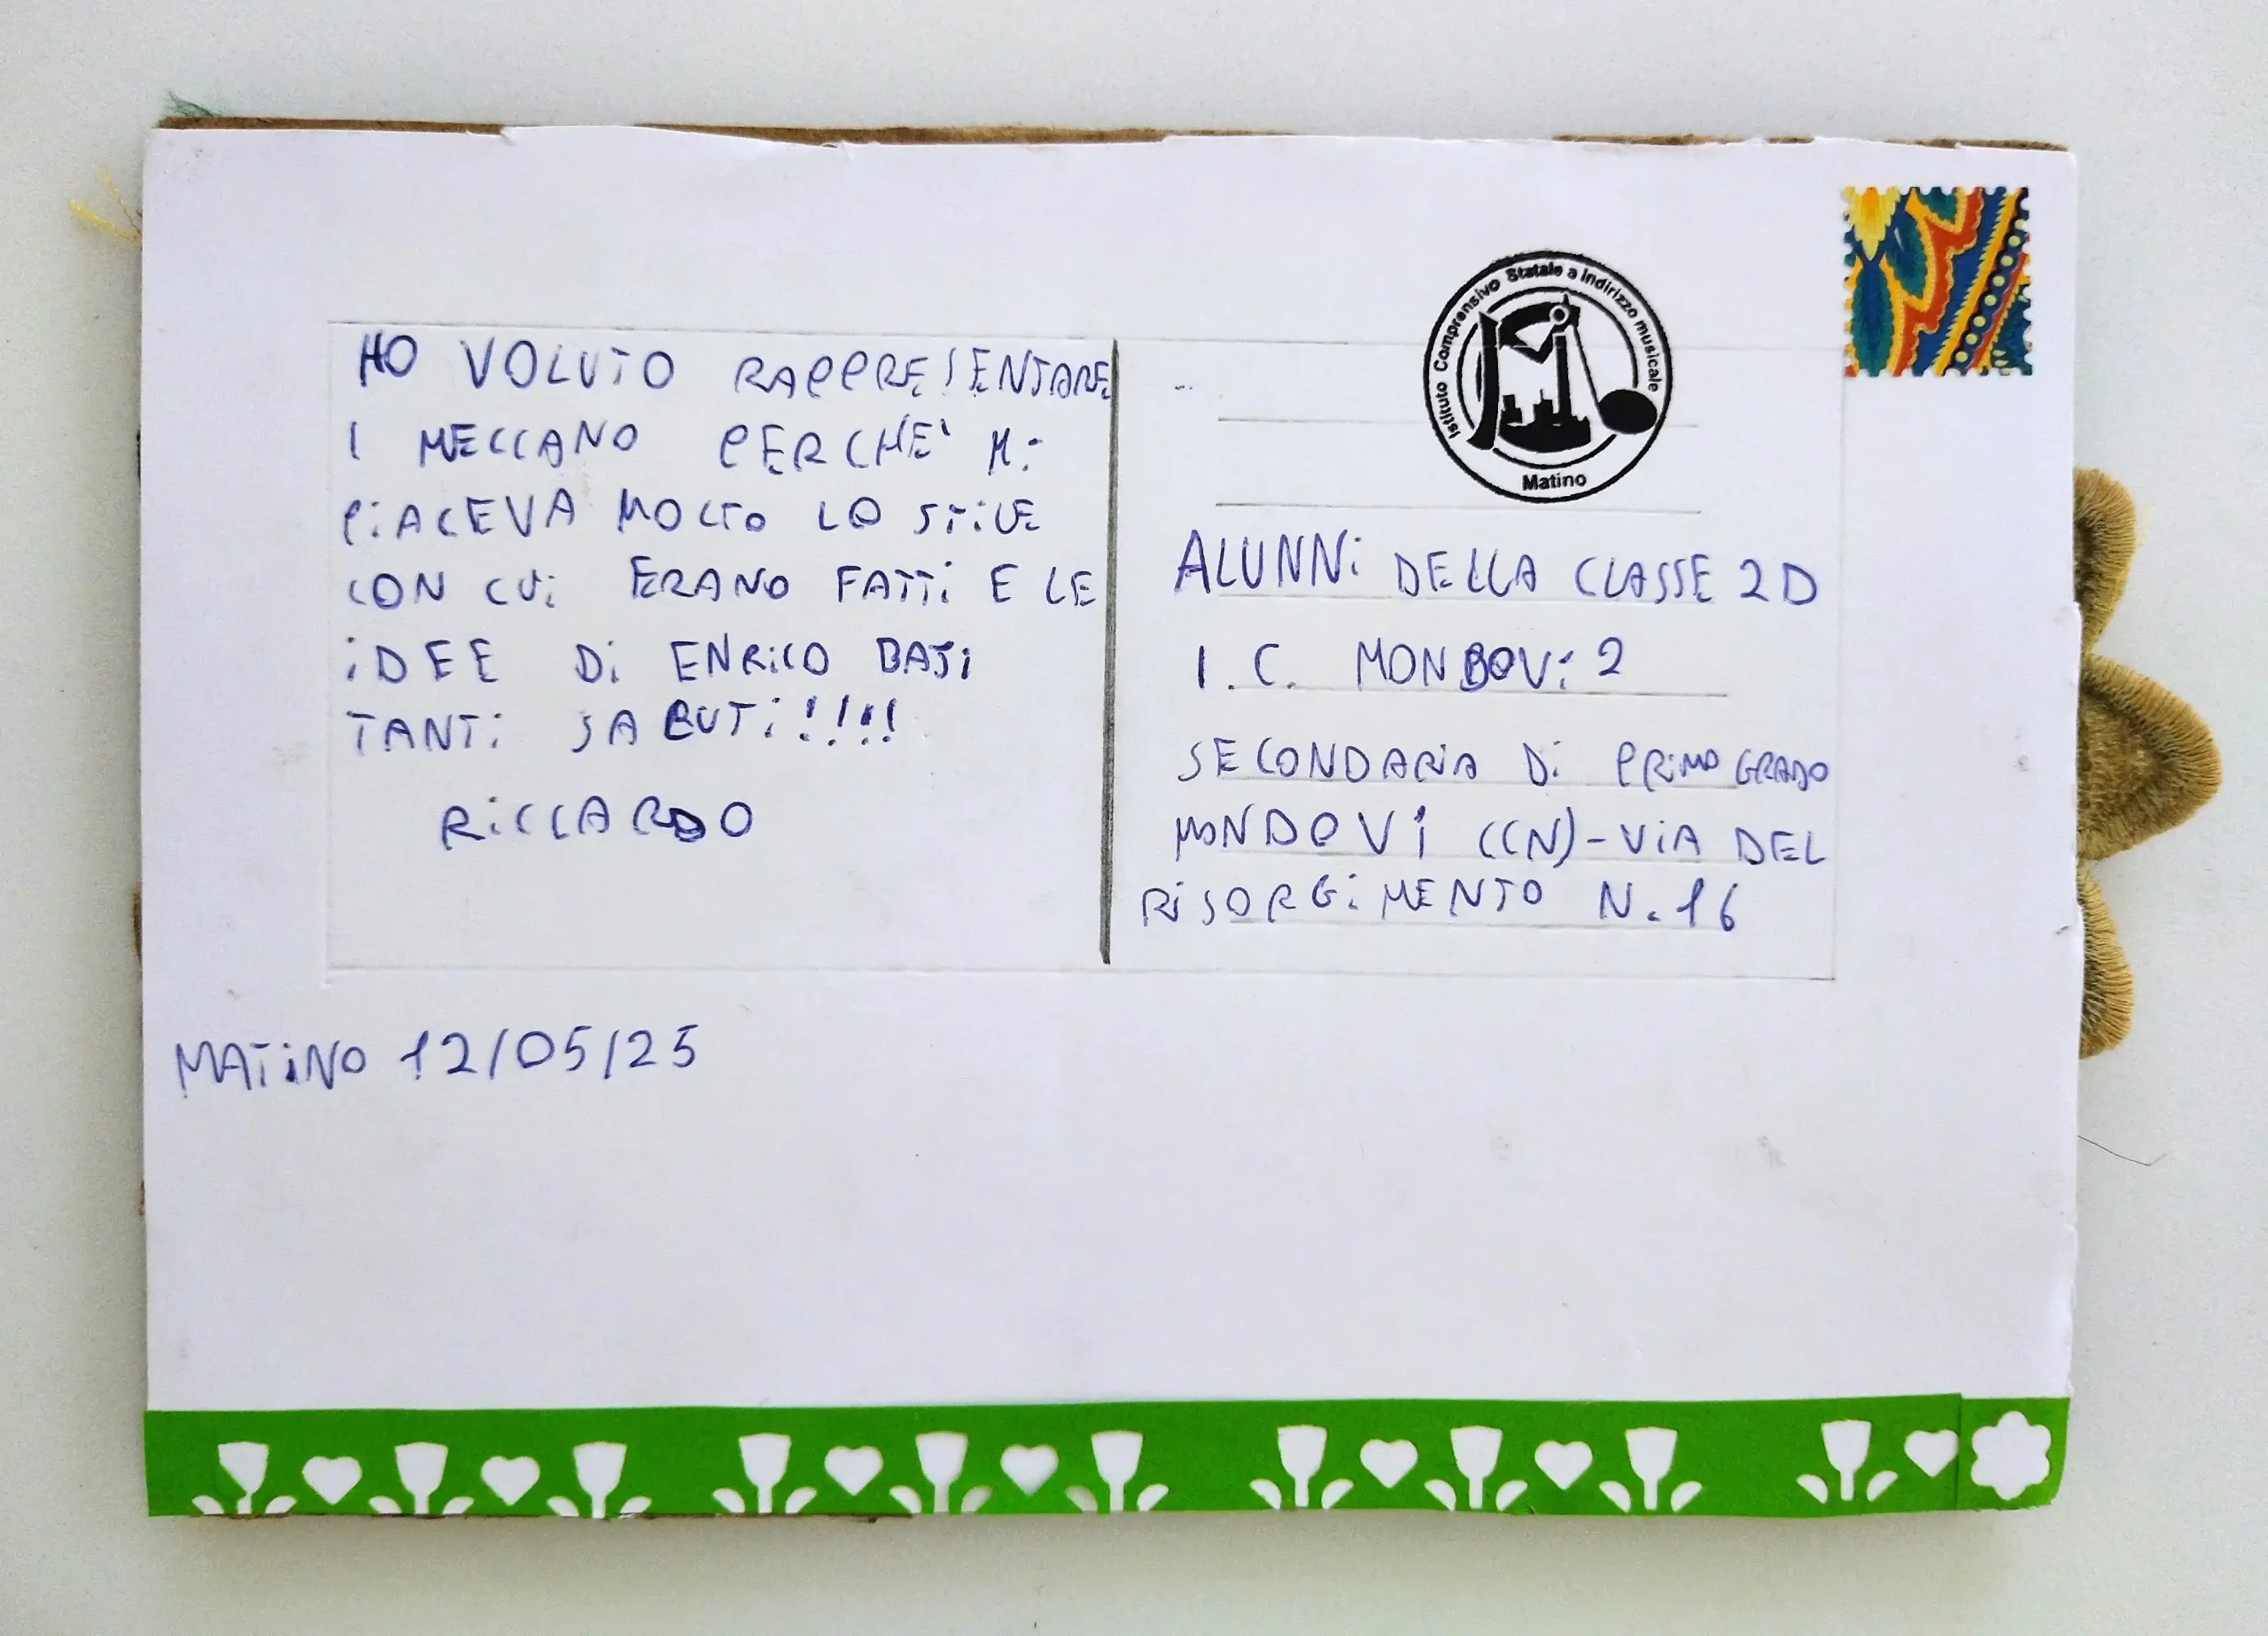 HO VOLUTO RAPPRESENTARE
I MECCANO PERCHE' Mi
PiACEVA MOLTO LO STiLE
CON CUi ERANO FATTi E LE
iDEE Di ENRiCO BAJi
TANTi SALUTi!!!!
RiCCARDO
MATiNO 12/05/25
Istituto Comprensivo Statale a indirizzo musicale
Matino
ALUNNi DELLA CLASSE 2D
I.C. MONDOVi 2
SECONDARiA Di PRiMO GRADO
MONDOVI (CN)-ViA DEL
RiSORGiMENTO N.16